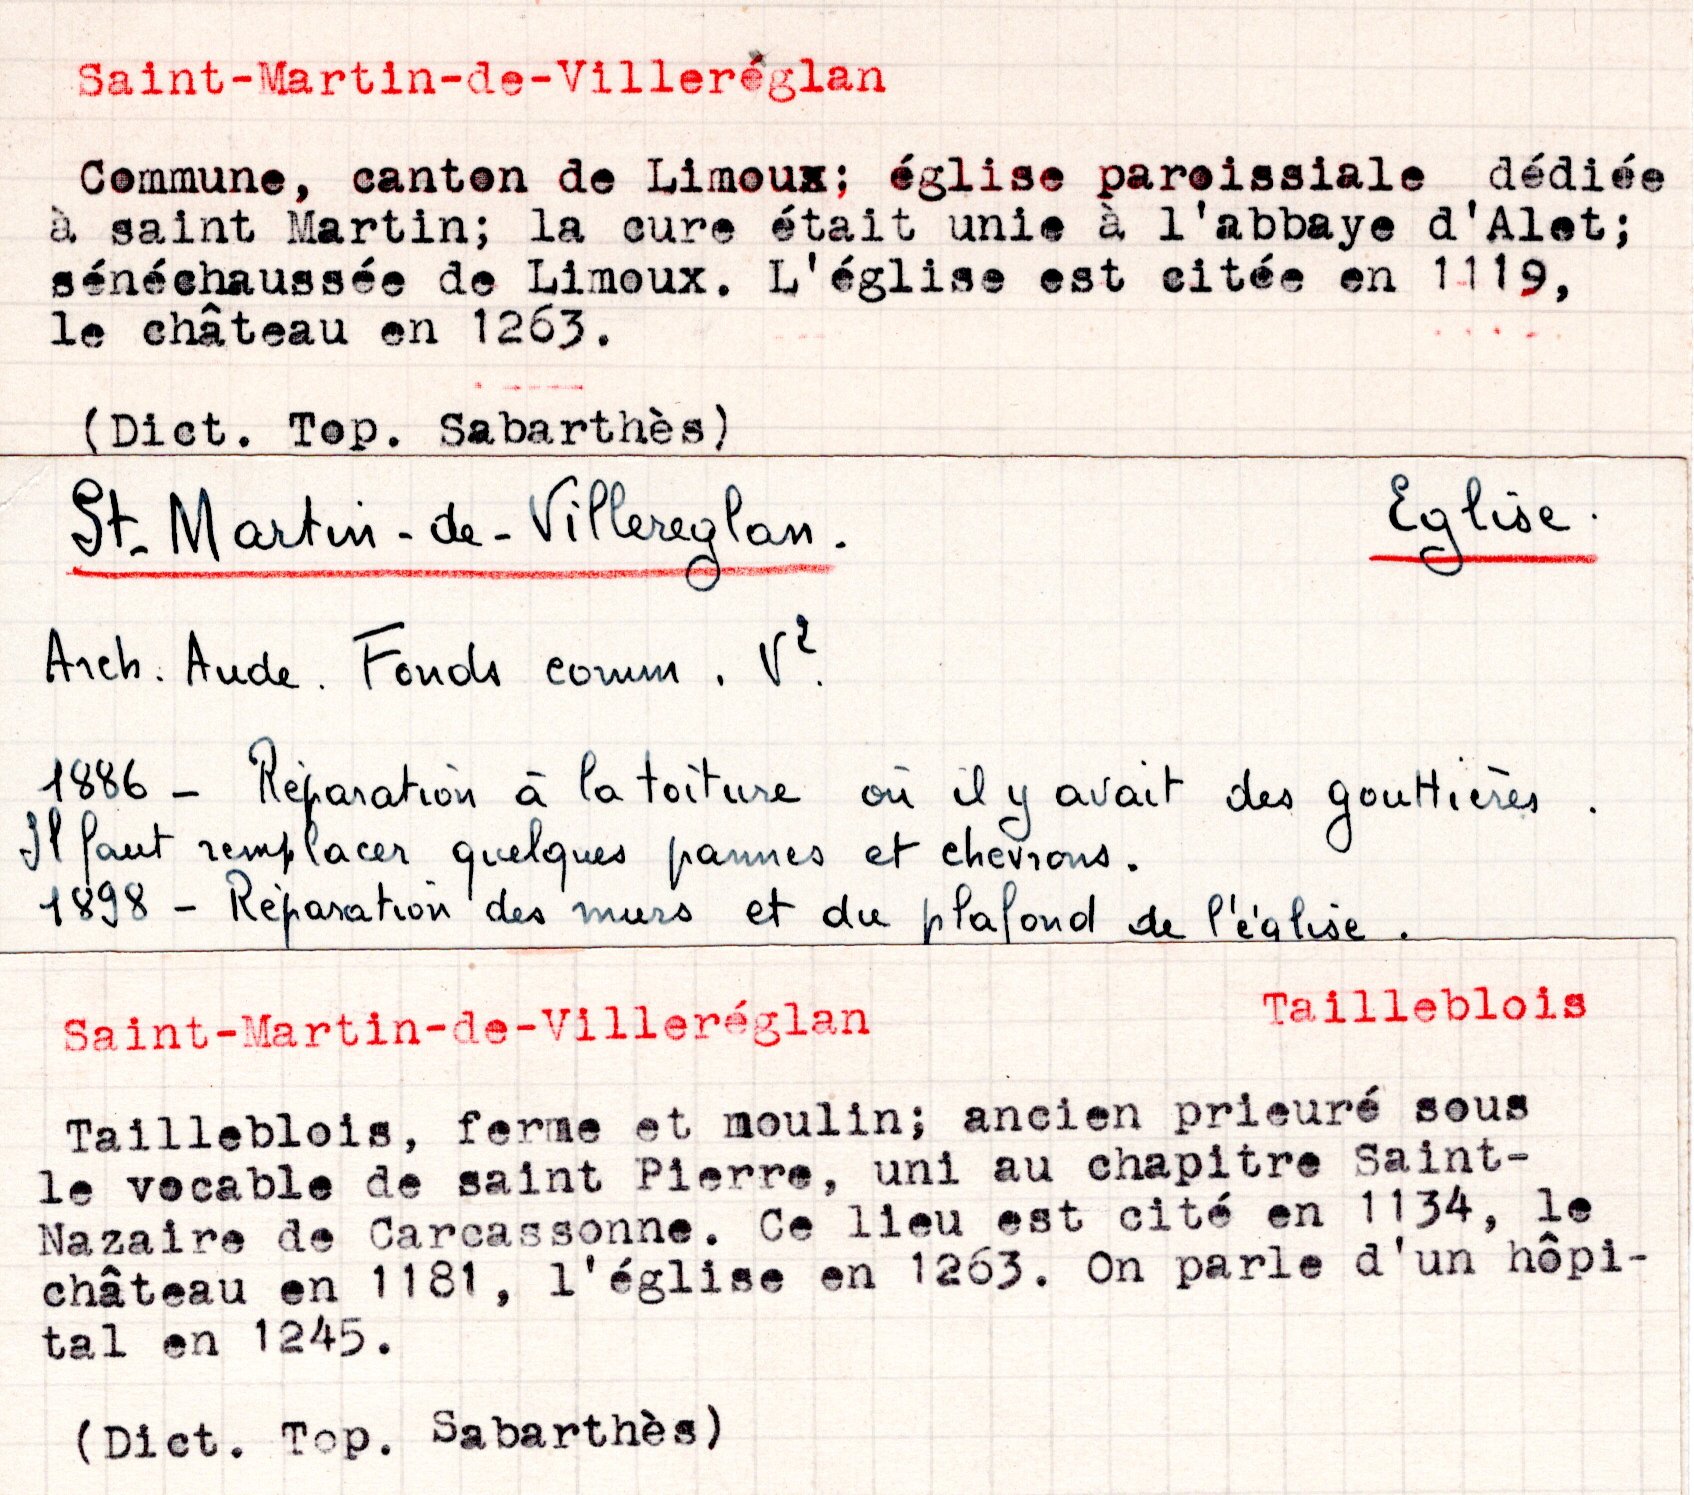 Saint-Martin-de-Villeréglan
Commune, canton de Limoux; église paroissiale dédiée
à saint Martin; la cure était unie à l'abbaye d'Alet;
sénéchaussée de Limoux. L'église est citée en 1119,
le château en 1263.
(Dict. Top. Sabarthès)
St-Martin-de-Villereglan. Eglise.
Arch. Aude. Fonds comm. V².
1886 - Réparation à la toiture où il y avait des gouttières.
Il faut remplacer quelques pannes et chevrons.
1898 - Réparation des murs et du plafond de l'église.
Saint-Martin-de-Villeréglan Tailleblois
Tailleblois, ferme et moulin; ancien prieuré sous
le vocable de saint Pierre, uni au chapitre Saint-
Nazaire de Carcassonne. Ce lieu est cité en 1134, le
château en 1181, l'église en 1263. On parle d'un hôpi-
tal en 1245.
(Dict. Top. Sabarthès)